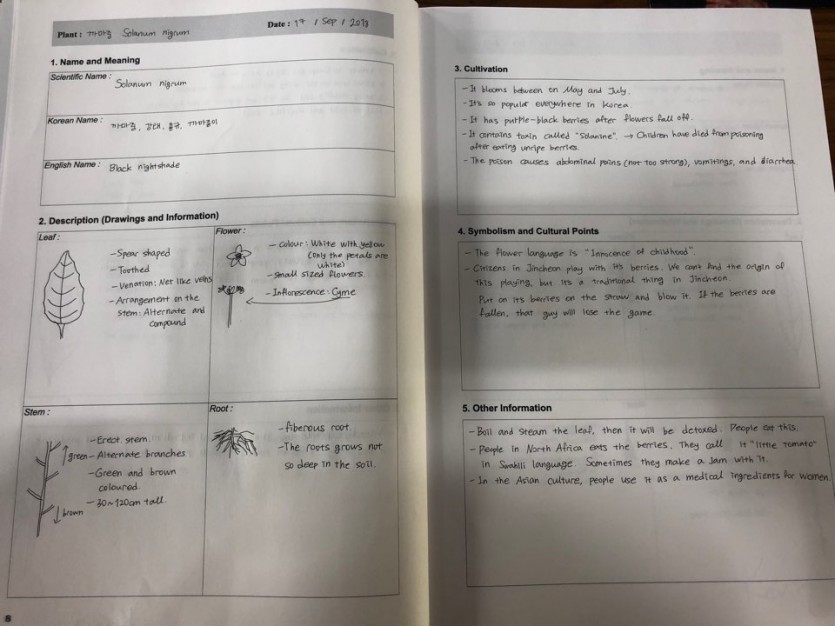 Plant : 까마중 Solanum nigrum
Date : 17 / Sep / 2019
1. Name and Meaning
Scientific Name :
Solanum nigrum
Korean Name :
까마중, 강태, 용규, 까마중이
English Name : Black nightshade
2. Description (Drawings and Information)
Leaf :
- Spear shaped
- Toothed
- Venation: Net like veins
- Arrangement on the
stem: Alternate and
compound
Flower :
- Colour : White with yellow
(Only the petals are
white)
- Small sized flowers.
- Inflorescence : Cyme
Stem :
- Erect stem.
green
- Alternate branches
- Green and brown
coloured
- 30~120cm tall.
brown
Root :
- fiberous root.
- The roots grows not
so deep in the soil.
8
3. Cultivation
- It blooms between on May and July.
- It's so popular everywhere in Korea.
- It has purple-black berries after flowers fall off.
- It contains toxin called "Solanine". → Children have died from poisoning
after eating unripe berries.
- The poison causes abdominal pains (not too strong), vomitings, and diarrhea
4. Symbolism and Cultural Points
- The flower language is "Innocence of childhood".
- Citizens in Jincheon play with its berries. We can't find the origin of
this playing, but it's a traditional thing in Jincheon.
Put on its berries on the straw and blow it. If the berries are
fallen, that guy will lose the game.
5. Other Information
- Boil and Steam the leaf, then it will be detoxed. People eat this.
- People in North Africa eats the berries. They call it "little tomato"
in Swahili language. Sometimes they make a Jam with it.
- In the Asian culture, people use it as a medical ingredients for women